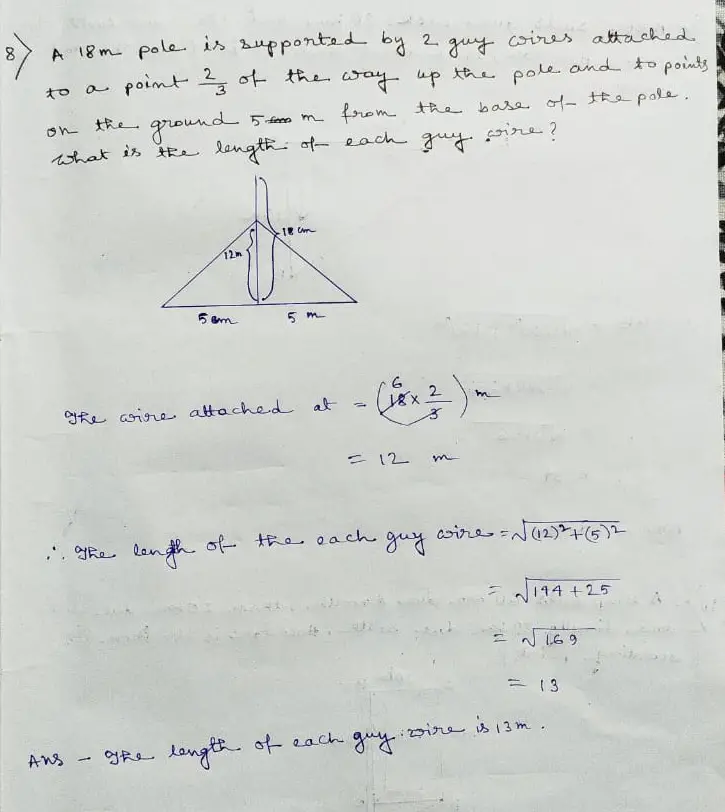 8) A 18m pole is supported by 2 guy wires attached
to a point 2/3 of the way up the pole and to points
on the ground 5 m from the base of the pole.
What is the length of each guy wire?
18 cm
12m
5 m
5 m
The wire attached at = (18 × 2/3) m
6
= 12 m
∴ The length of the each guy wire = √(12)²+(5)²
= √144 + 25
= √169
= 13
Ans - The length of each guy wire is 13m.